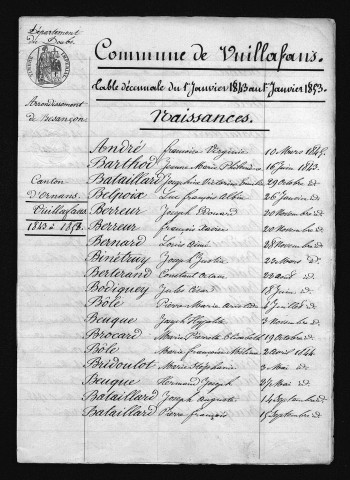 Département
du Doubs.
Arrondissement
de Besançon
Canton
d'Ornans
Vuillafans
1843 à 1853.
Commune de Vuillafans.
Table décennale du 1er Janvier 1843 au 1er Janvier 1853.
Naissances.
André françoise Virginie 10 Mars 1845.
Barthod Jeanne Marie Philomène 16 Juin 1843.
Bataillard Joséphine Victorine 29 Octobre id
Belpoix Luc françois 26 Janvier id
Berreur Joseph Bernard 20 Novembre id
Berreur françois Xavier 20 Novembre id
Bernard Louis Aimé 28 Novembre id
Bénétruy Joseph Justin 22 Mars id.
Berterand Constant 23 Août id
Bodiguey Jules César 18 Juin id.
Bôle Pierre Marie Aristide 1 Juillet id
Beuque Joseph Hypolite 3 Novembre id
Brocard Marie Pierrette Elisabeth 19 Octobre id
Bôle Marie françoise 2 Août 1844.
Bridoulot Marie Stéphanie 3 Mai id
Beuque Hermand Joseph 24 Mai id.
Bataillard Joseph Auguste 14 Septembre id
Bataillard Pierre françois 15 Septembre id